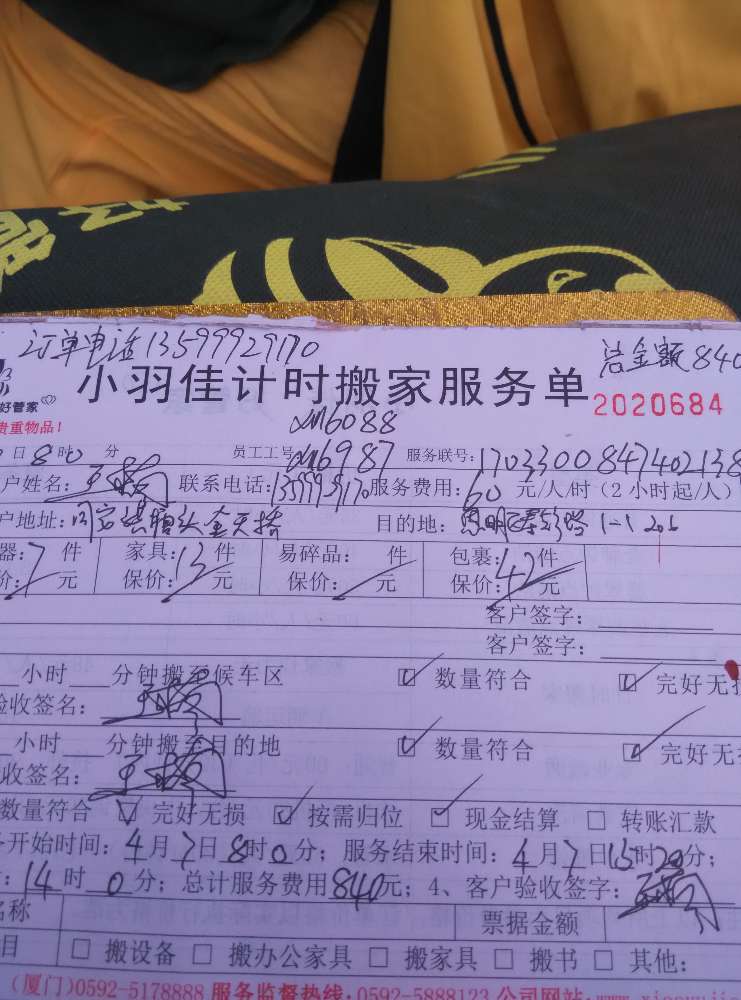 订单电话13599929170 总金额840
小羽佳计时搬家服务单
好管家
2020684
贵重物品！
XM6088
日8时0分 员工工号:XM6987 服务联号:1703300847402138
户姓名: 联系电话:13599929170服务费用:60元/人/时（2小时起/人）
户地址: 目的地: 1-1 206
器:7件 家具:13件 易碎品: 件 包裹:42件
价: 元 保价: 元 保价: 元 保价: 元
客户签字:
客户签字:
小时 分钟搬至候车区 数量符合 完好无损
验收签名:
小时 分钟搬至目的地 数量符合 完好无
收签名:
数量符合 完好无损 按需归位 现金结算 转账汇款
开始时间:4月7日8时0分；服务结束时间:4月7日15时20分；
:14时0分；总计服务费用840元；4、客户验收签字:
名称 票据金额
目 搬设备 搬办公家具 搬家具 搬书 其他:
(厦门)0592-5178888 服务监督热线:0592-5888123 公司网站: